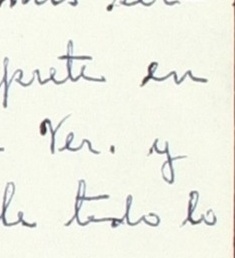 prete en
Ver. y
de todo lo